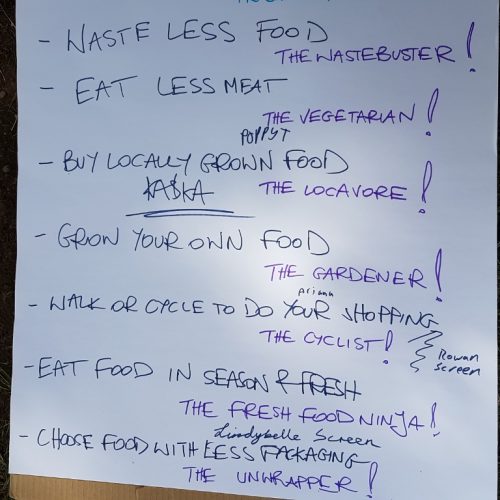 - WASTE LESS FOOD
THE WASTEBUSTER!
- EAT LESS MEAT
THE VEGETARIAN!
POPPY T
- BUY LOCALLY GROWN FOOD
KASKA THE LOCAVORE!
- GROW YOUR OWN FOOD
THE GARDENER!
- WALK OR CYCLE TO DO YOUR SHOPPING
THE CYCLIST!
Rowan
Screen
- EAT FOOD IN SEASON & FRESH
THE FRESH FOOD NINJA!
Lindybelle Screen
- CHOOSE FOOD WITH LESS PACKAGING
THE UNWRAPPER!